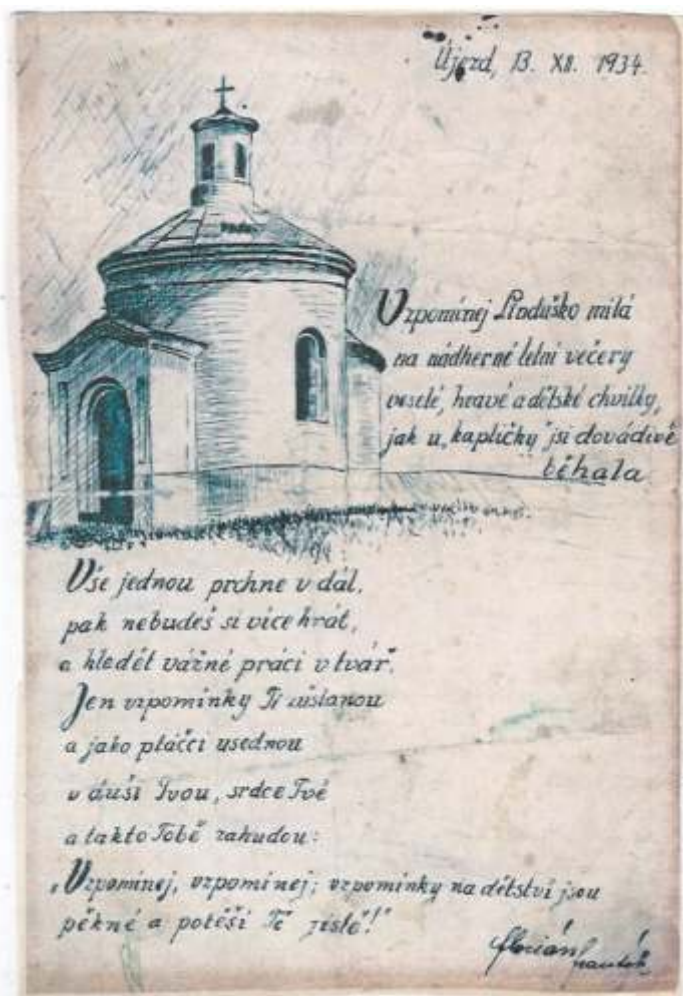 Újezd, 13. XII. 1934.
Vzpomínej Linduško milá
na nádherné letní večery
veselé, hravé a dětské chvilky,
jak u „kapličky" jsi dovádivě
běhala.
Vše jednou prchne v dál,
pak nebudeš si více hrát,
a hledět vážné práci v tvář.
Jen vzpomínky Ti zůstanou
a jako ptáčci usednou
v duši Tvou, srdce Tvé
a takto Tobě zahudou:
„Vzpomínej, vzpomínej; vzpomínky na dětství jsou
pěkné a potěší Tě jistě!"
Florián